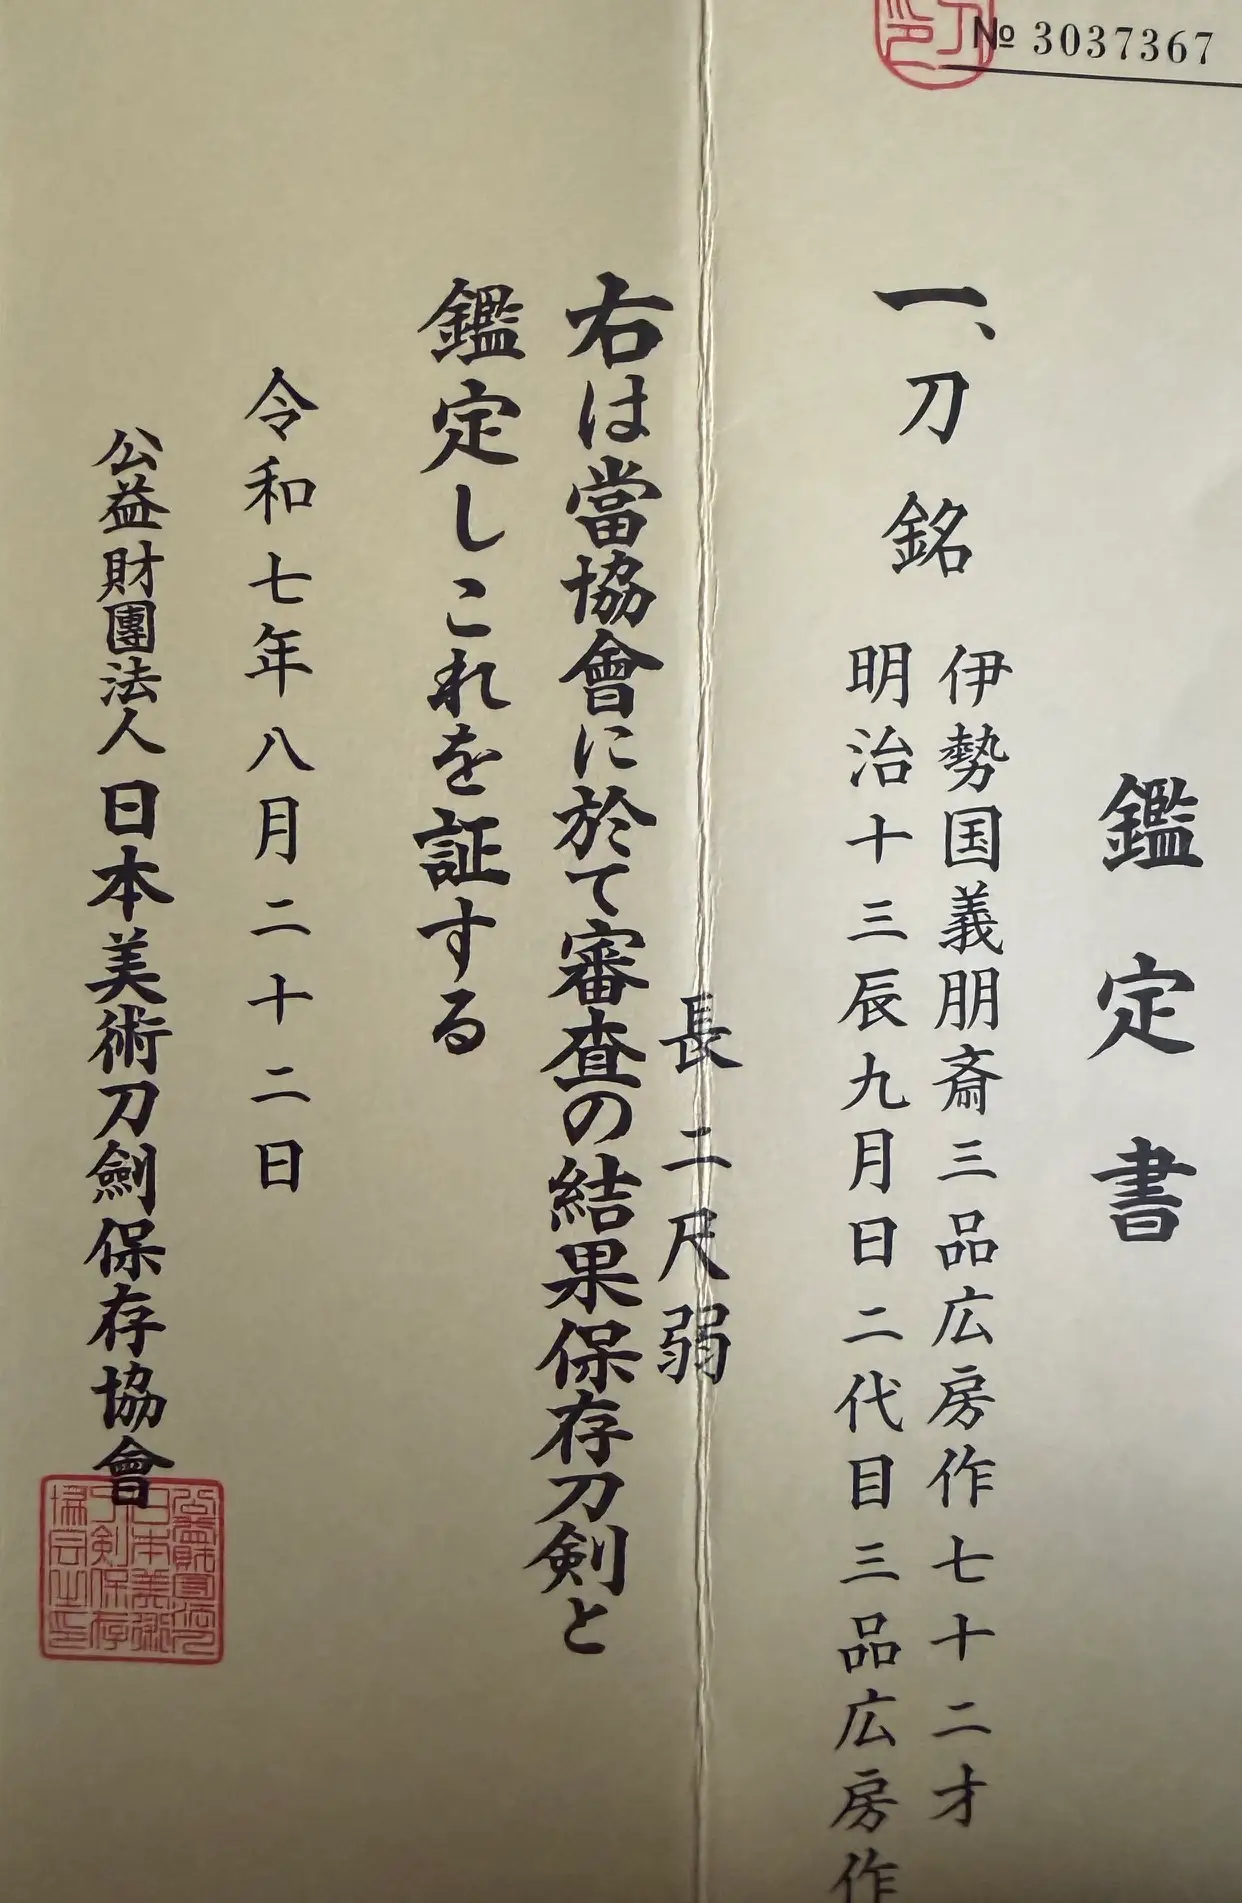 № 3037367
鑑定書
一、刀 銘
伊勢国義朋斎三品広房作七十二才
明治十三辰九月日二代目三品広房作
長二尺弱
右は當協會に於て審査の結果保存刀剣と
鑑定しこれを証する
令和七年八月二十二日
公益財團法人日本美術刀劍保存協會